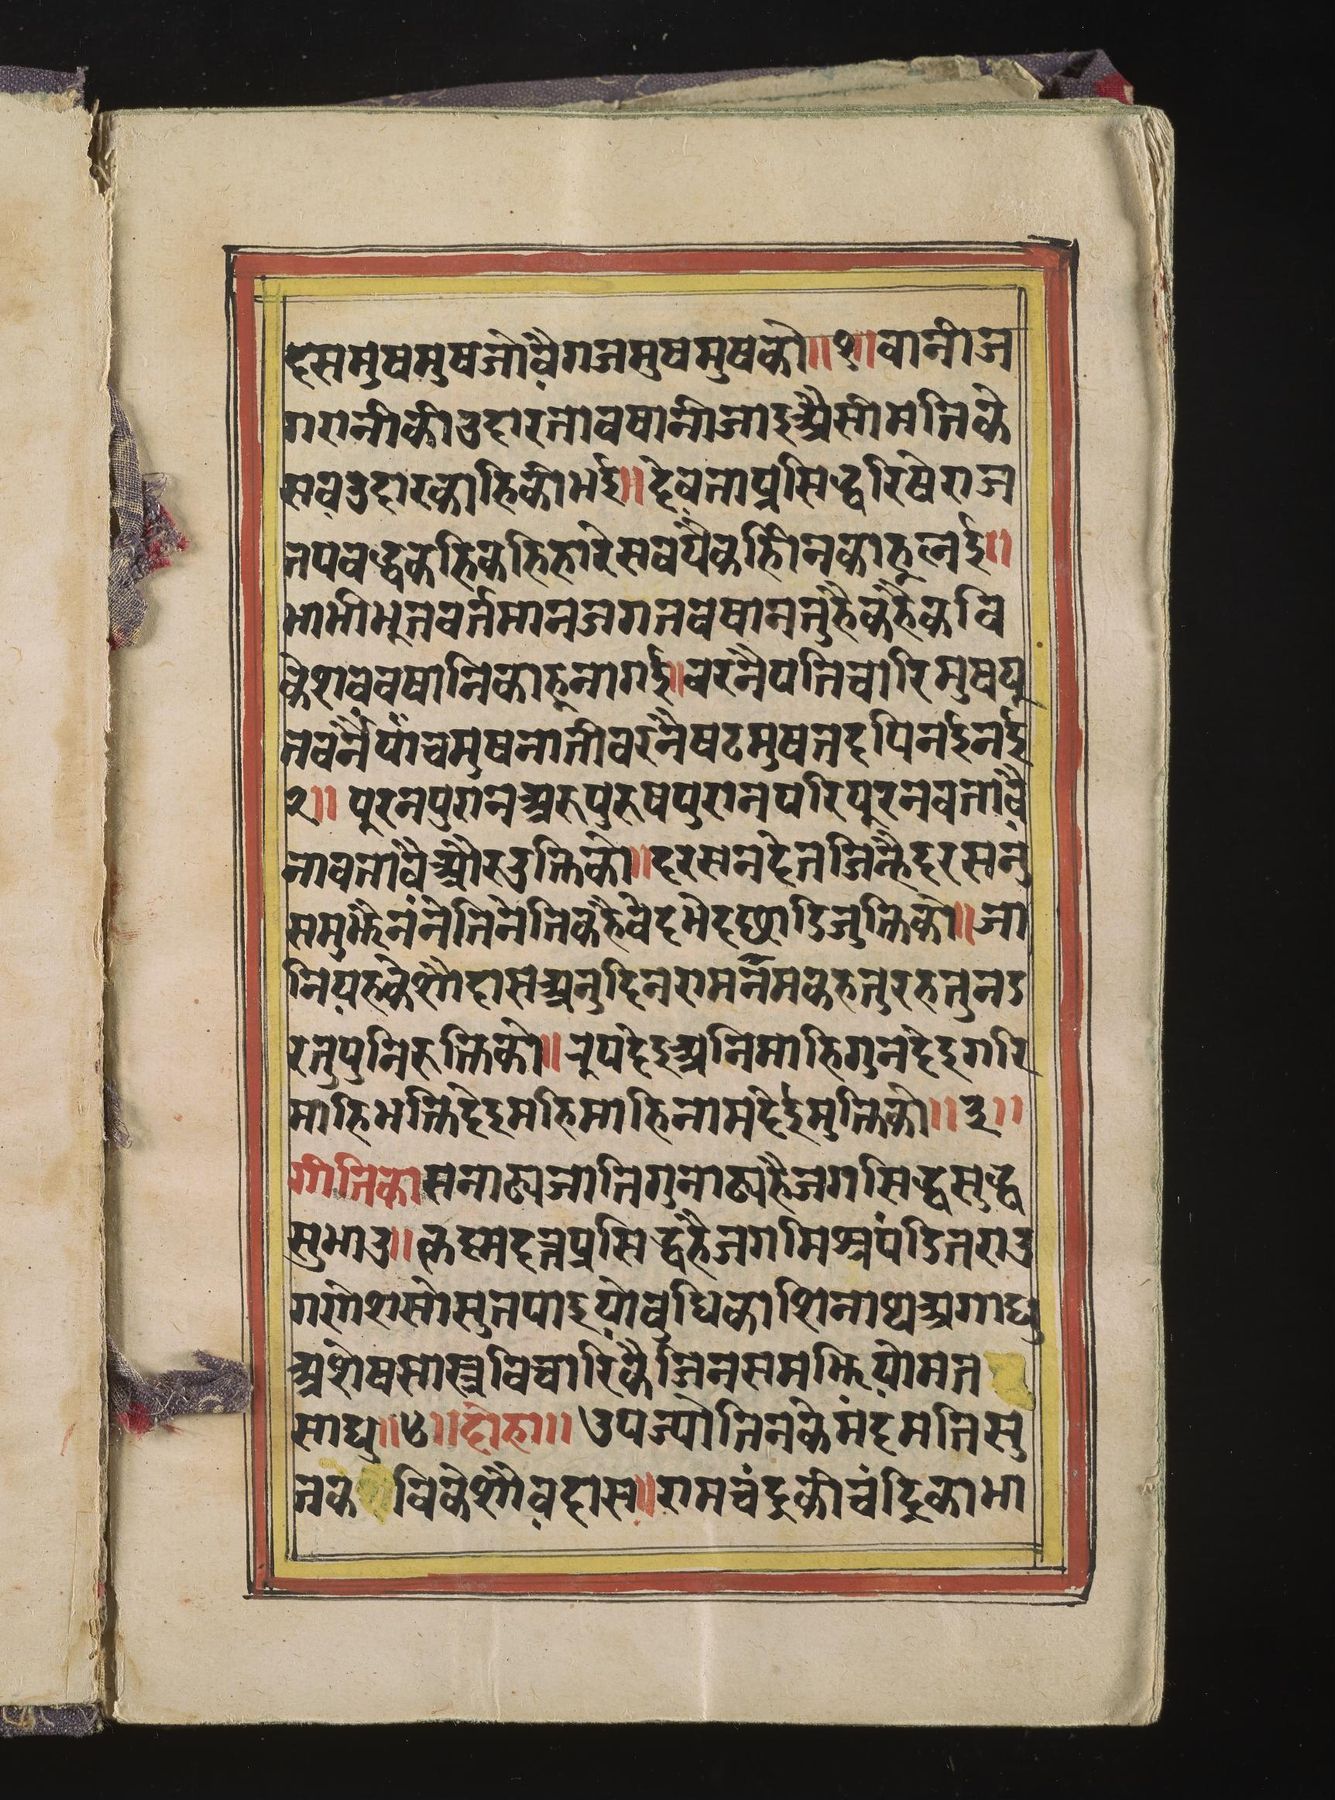 दसमुषमुषजोवैगजमुषमुषको॥१॥वानीज
गरानीकीउदारतावषानीजाइअैसीमतिके
सवउदारकाहिकीभई॥देवताप्रसिद्धरिषेराज
तपवद्धकहिकहिहारेसवपैकहिनकाहूलई॥
भाभीभूतवर्तमानजगतवषानतुहैकैहैकवि
केशववषानिकाहूनागई॥वरनैपतिचारिमुषपू
तवर्नैपांचमुषनातीवरनैषटमुषतदपिनईनई
२॥ पूरनपुरानअरुपुरुषपुरानपरिपूरनवतावै
नावतावैऔरउक्तिको॥दरसनदेतजिन्हैदरसनु
समुझैनंनेतिनेतिकहैवेदभेदछाडिजुक्तिको॥जा
नियहकेशौदाससअनुदिनरामनैमकहतुरहतुनड
रतुपुनिरुक्तिको॥रूपदेइअनिमाहिगुनदेइगरि
माहिभक्तिदेइमहिमाहिनामदेईमुक्तिको॥३॥
गीतिकासनाढ्यजातिगुनाढ्यहैजगसिद्धसुद्ध
सुभाउ॥कृष्नदत्तप्रसिद्धहैजगमिश्रपंडितराउ
गणेशसोसुतपाइयोवुधिकाशिनाथअगाधु
अशेषसास्त्रविचारिकैजिनसमझियोमत
साधु॥४॥दोहा॥उपज्योतिनकेमंदमतिसु
तकविकेशौवदास॥रामचंद्रकीचंद्रिकाभा